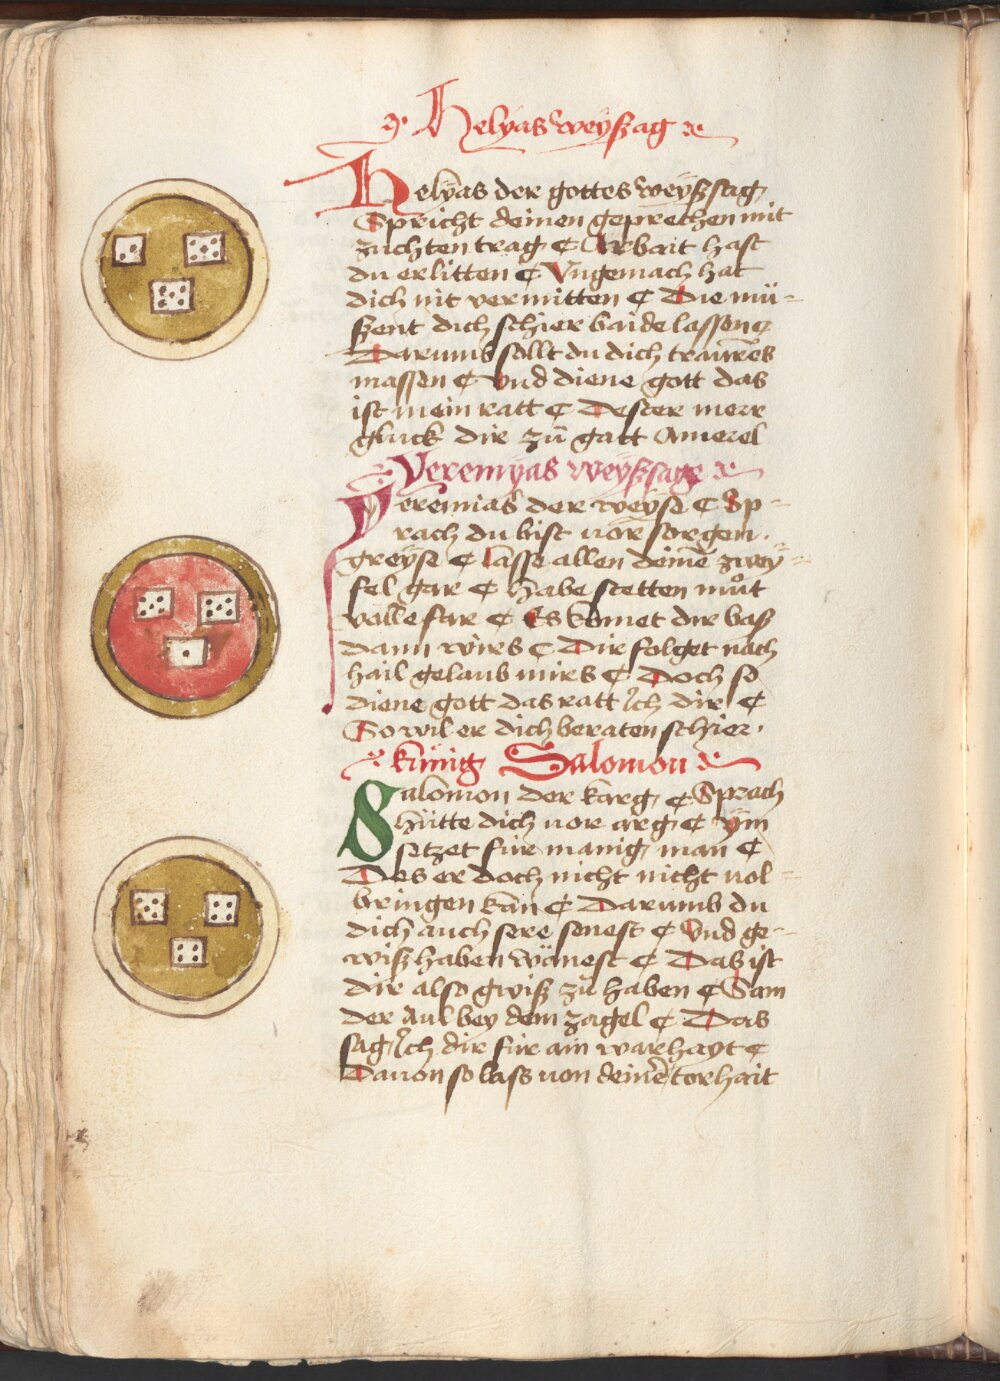 Helyas weyßag
Helyas der gottes weyßsag
Spricht deinen geprechen mit
züchten trag ¶ Arbait hast
du erlitten ¶ Vngemach hat
dich nit vermitten ¶ Die mü-
ßent dich schier baide lassen ¶
Darumb sollt du dich traurēs
massen ¶ Vnd diene gott das
ist mein ratt ¶ Dester merr
gluck dir zů gatt
Yeremyas weyßsage
Yeremias der weyse ¶ Sp-
rach du bist vor sorgen
greyse ¶ lasse allen deinē zwey-
fel gar ¶ Habe stetten můt
 far ¶ Es komet dir baß
dann wirs ¶ Dir folget nach
hail gelaub mirs ¶ Doch so
diene gott das ratt Ich dir ¶
So wil er dich beraten schier.
künig Salomon
Salomon der karg ¶ Sprach
hütte dich vor arg ¶ Ym
setzet für manig man ¶
Des er doch nicht nicht vol-
bringen kan ¶ Darumb du
dich auch sere senest ¶ Vnd ge-
wiß haben wänest ¶ Das ist
dir also gwiß zů haben ¶ Sam
der Aul bey dem zagel ¶ Das
sag Ich dir für ain warhayt ¶
Dauon so lass von deinēr torhait